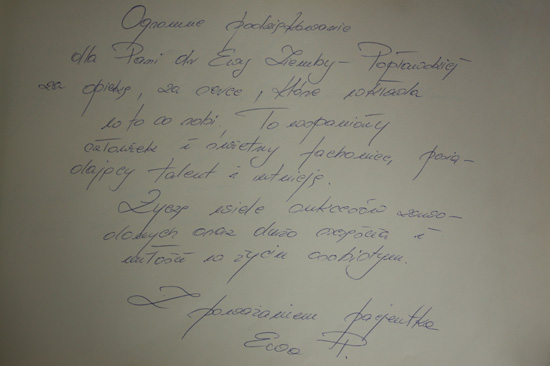 Ogromne podziękowanie
dla Pani dr Ewy Ziemby-Popławskiej
za opiekę, za serce, które wkłada
w to co robi, To wspaniały
człowiek i świetny fachowiec, posia-
dający talent i intuicję.
Życzę wiele sukcesów zawo-
dowych oraz dużo szczęścia i
miłości w życiu osobistym.
Z poważaniem pacjentka
Ewa P.